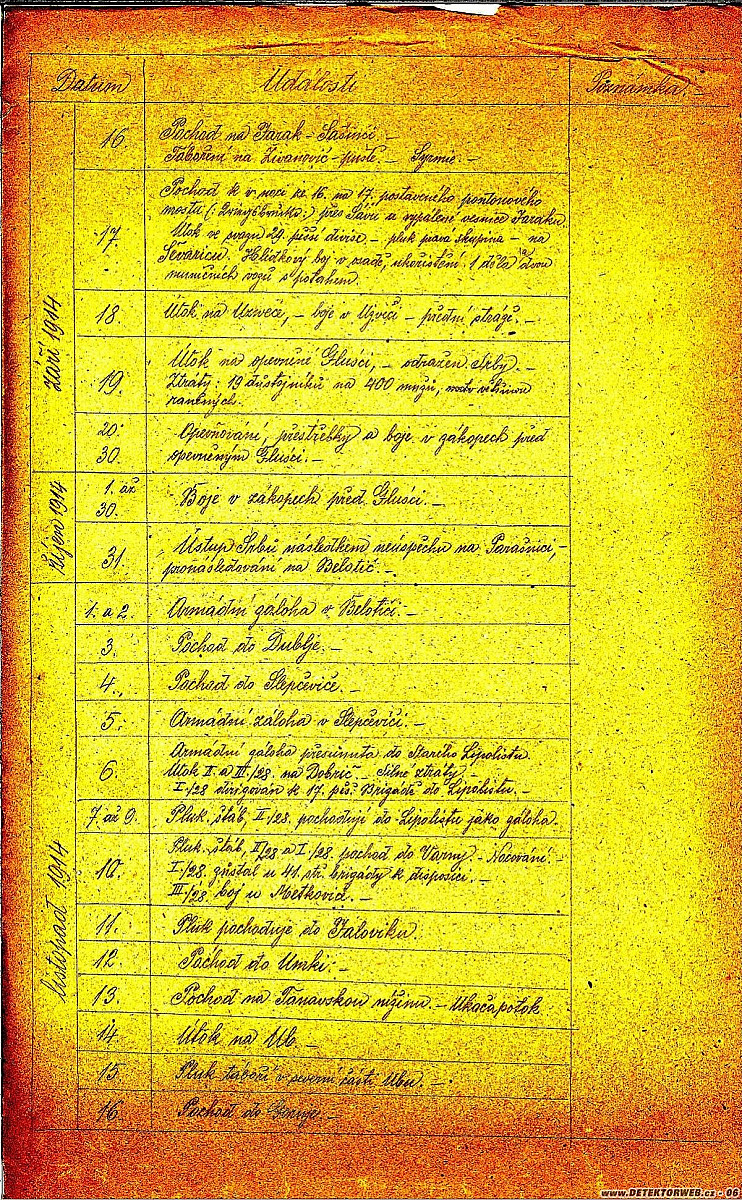 Datum Události Poznámka. -
září 1914
16. Pochod na Jarak - Šašinci -
Táboření na Živanović - pusté. - Syrmie. -
17. Pochod k v noci ke 16. na 17. postaveného pontonového
mostu přes Sávu u vypálené vesnice Jaraku.
Útok ve svazu 29. pěší divise - pluk pravá skupina - na
Ševaricu. Hlídkový boj v osadě, ukořistění 1 děla a dvou
muničních vozů s potahem.
18. Útok na Uzveće, - boje v Uzvěći - přední stráže. -
19. Útok na opevněné Glušci, - odražen Srby. -
Ztráty: 19 důstojníků na 400 mužů, většinou
raněných.
20. Opevňování, přestřelky a boje v zákopech před
30. opevněným Glušci. -
říjen 1914
1. až
30. Boje v zákopech před Glušci. -
31. Ústup Srbů následkem neúspěchu na Parašnici, -
pronásledování na Belotić. -
listopad 1914
1. a 2. Armádní záloha v Belotići. -
3. Pochod do Dublje. -
4. Pochod do Slepčeviće. -
5. Armádní záloha v Slepčevići. -
6. Armádní záloha přesunuta do Starého Lipolistu.
Útok II. a III./28. na Dobrić - Silné ztráty. -
I./28 dirigován k 17. pěš. Brigádě do Lipolistu. -
7. až 9. Pluk. štáb, II./28. pochodují do Lipolistu jako záloha.
10. Pluk. štáb, II/28 a I./28. pochod do Varny. - Nocování. -
I./28. zůstal u 41. brigády k disposici. -
III./28. boj u Metkovića. -
11. Pluk pochoduje do Jaloviku.
12. Pochod do Umki. -
13. Pochod na Tanavskou nížinu. - Ukača potok
14. Útok na Ub. -
15. Pluk táboří v severní části Ubu. -
16. Pochod do -
www.DETEKTORWEB.cz - 06